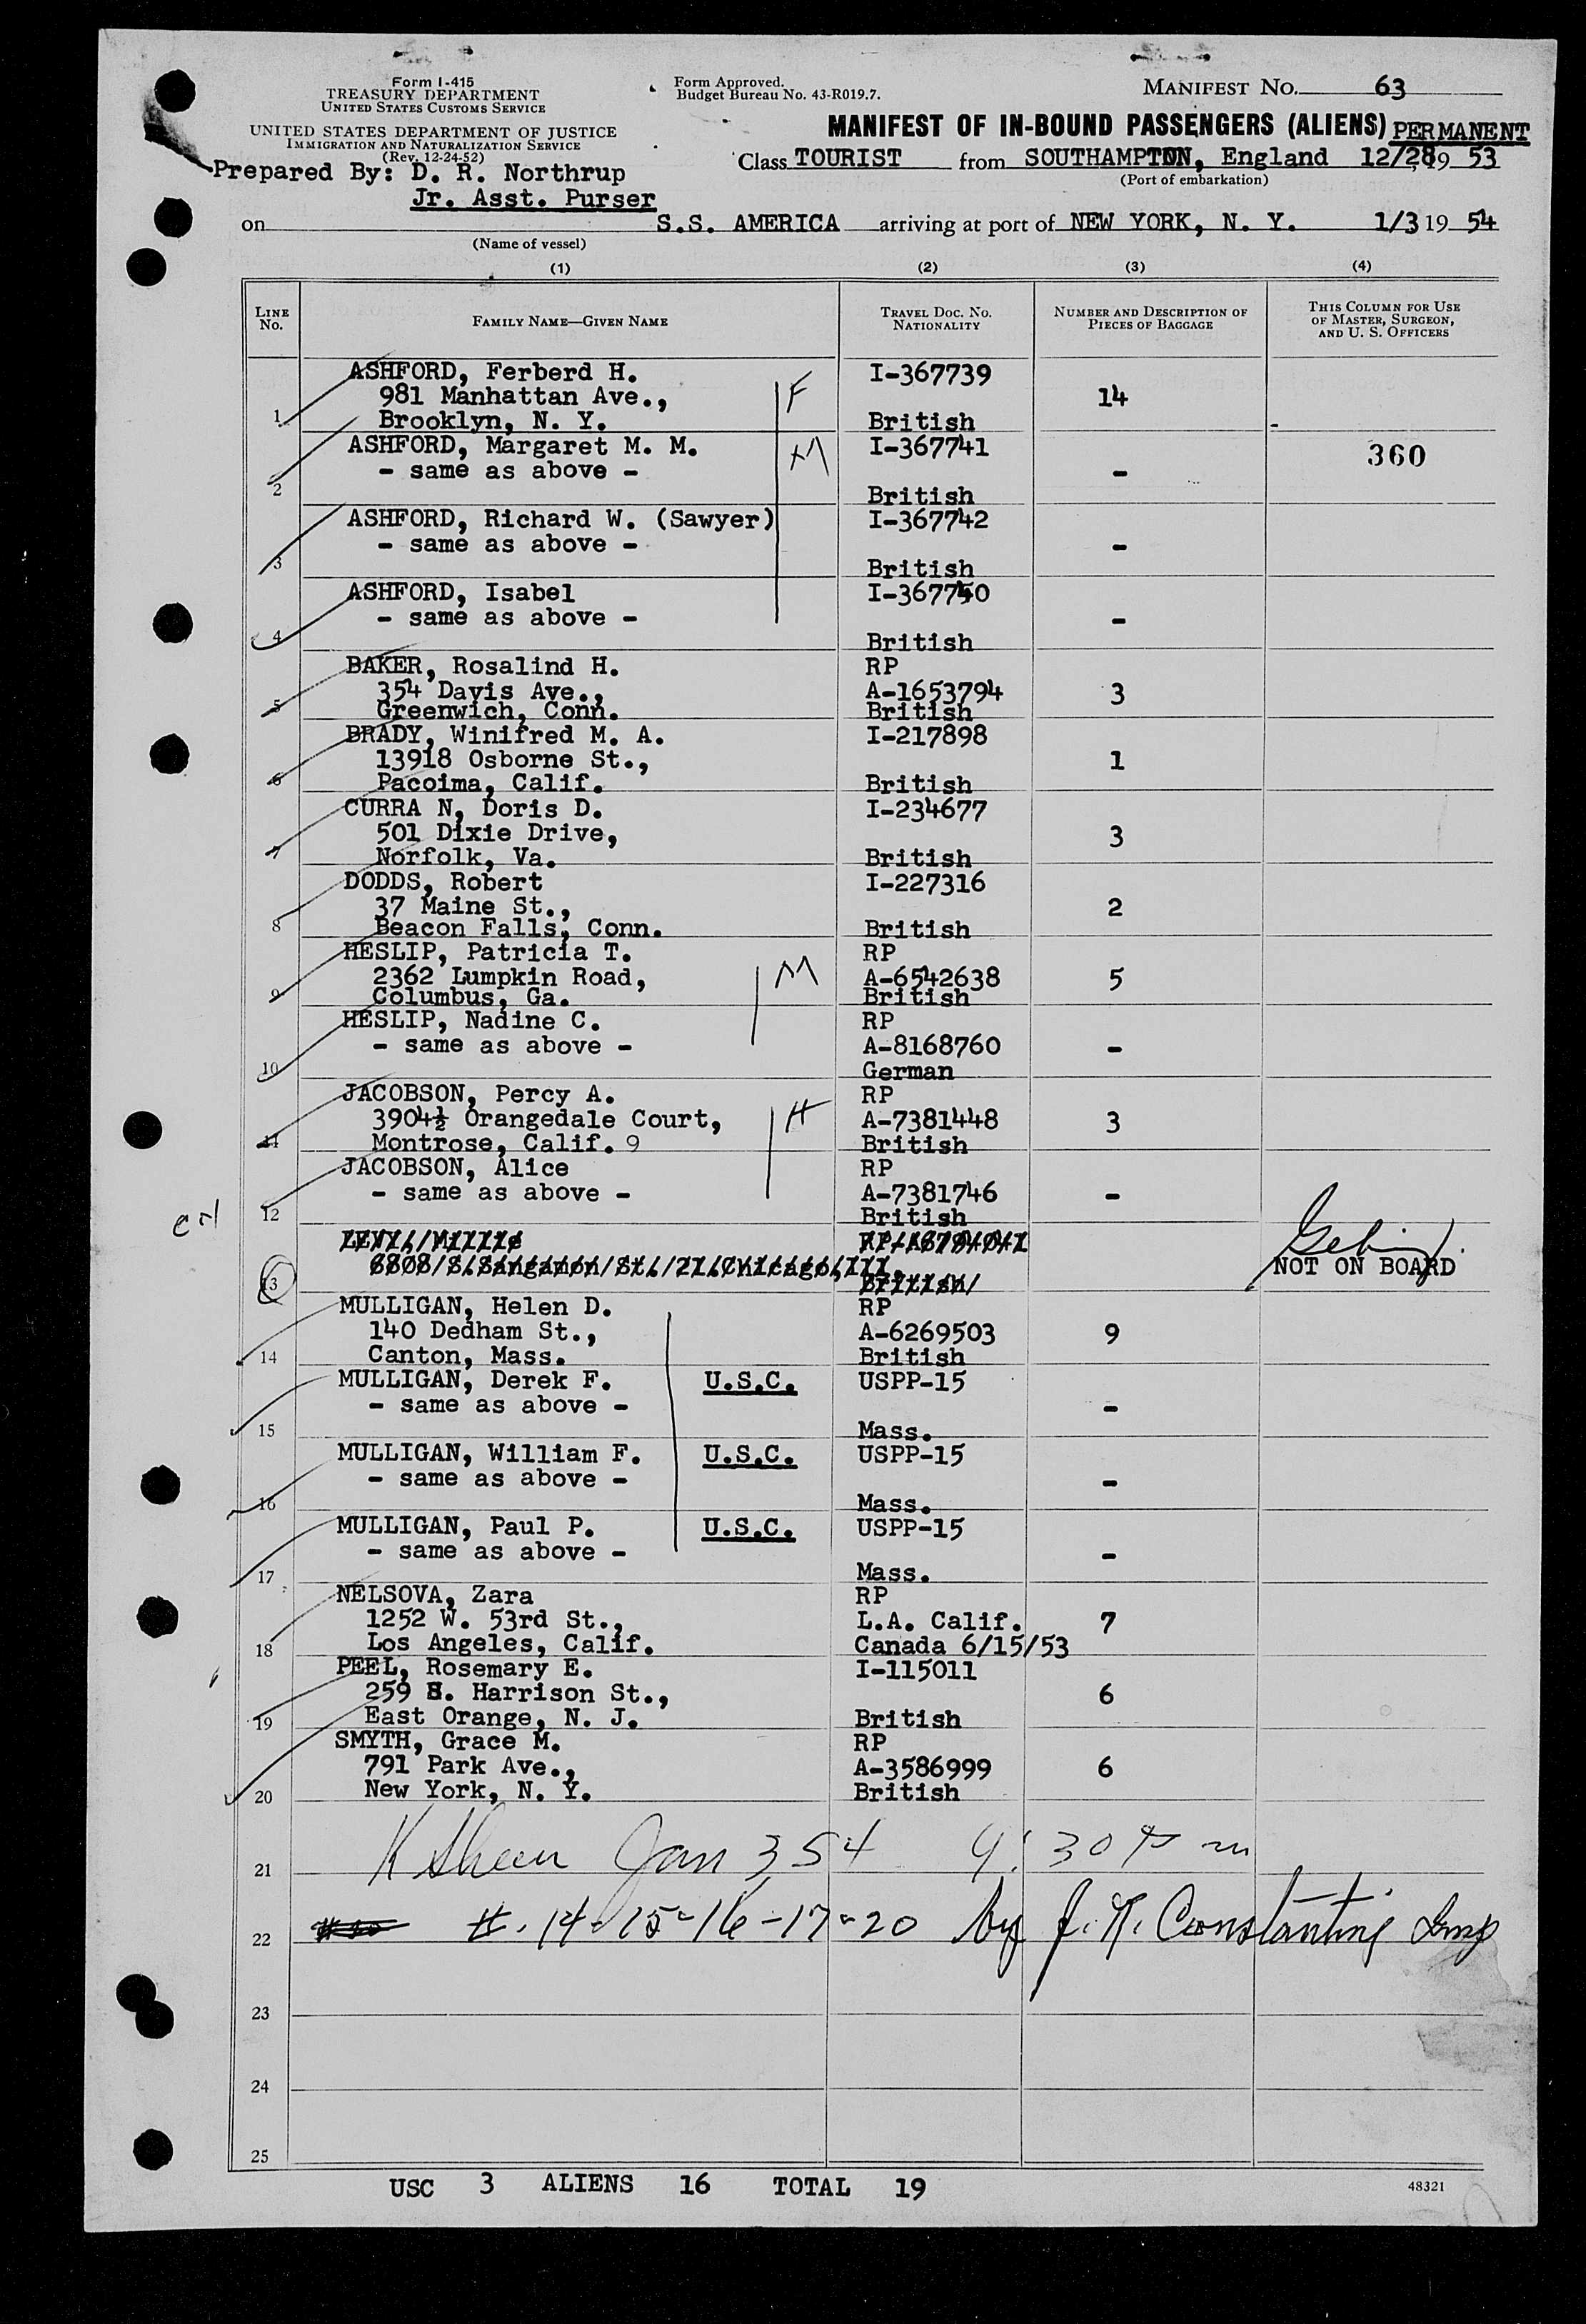 Form I-415
TREASURY DEPARTMENT
UNITED STATES CUSTOMS SERVICE
UNITED STATES DEPARTMENT OF JUSTICE
IMMIGRATION AND NATURALIZATION SERVICE
(Rev. 12-24-52)
Prepared By: D. R. Northrup
Jr. Asst. Purser
Form Approved.
Budget Bureau No. 43-R019.7.
MANIFEST NO. 63
MANIFEST OF IN-BOUND PASSENGERS (ALIENS) PERMANENT
Class TOURIST from SOUTHAMPTON, England 12/28 19 53
(Port of embarkation)
on S.S. AMERICA arriving at port of NEW YORK, N. Y. 1/3 19 54
(Name of vessel)
(1) (2) (3) (4)
LINE NO. FAMILY NAME—GIVEN NAME TRAVEL DOC. NO. NATIONALITY NUMBER AND DESCRIPTION OF PIECES OF BAGGAGE THIS COLUMN FOR USE OF MASTER, SURGEON, AND U. S. OFFICERS
ASHFORD, Ferberd H. I-367739
981 Manhattan Ave., F 14
1 Brooklyn, N. Y. British -
ASHFORD, Margaret M. M. M I-367741 360
- same as above - -
2 British
ASHFORD, Richard W. (Sawyer) I-367742
- same as above - -
3 British
ASHFORD, Isabel I-367740
- same as above - -
4 British
BAKER, Rosalind H. RP
354 Davis Ave., A-1653794 3
5 Greenwich, Conn. British
BRADY, Winifred M. A. I-217898
13918 Osborne St., 1
6 Pacoima, Calif. British
CURRA N, Doris D. I-234677
501 Dixie Drive, 3
7 Norfolk, Va. British
DODDS, Robert I-227316
37 Maine St., 2
8 Beacon Falls, Conn. British
HESLIP, Patricia T. RP
2362 Lumpkin Road, M A-6542638 5
9 Columbus, Ga. British
HESLIP, Nadine C. RP
- same as above - A-8168760 -
10 German
JACOBSON, Percy A. RP
3904½ Orangedale Court, H A-7381448 3
11 Montrose, Calif. 9 British
JACOBSON, Alice RP
- same as above - A-7381746 -
12 British
8808 S. Sangamon St., 21, Chicago, Ill.
13 British NOT ON BOARD
MULLIGAN, Helen D. RP
140 Dedham St., A-6269503 9
14 Canton, Mass. British
MULLIGAN, Derek F. U.S.C. USPP-15
- same as above - -
15 Mass.
MULLIGAN, William F. U.S.C. USPP-15
- same as above - -
16 Mass.
MULLIGAN, Paul P. U.S.C. USPP-15
- same as above - -
17 Mass.
NELSOVA, Zara RP
1252 W. 53rd St., L.A. Calif. 7
18 Los Angeles, Calif. Canada 6/15/53
PEEL, Rosemary E. I-115011
259 S. Harrison St., 6
19 East Orange, N. J. British
SMYTH, Grace M. RP
791 Park Ave., A-3586999 6
20 New York, N. Y. British
21 Jan 3 54 9:30 P m
22 #. 14-15-16-17-20 by J. Constantine Insp
23
24
25
USC 3 ALIENS 16 TOTAL 19
48321